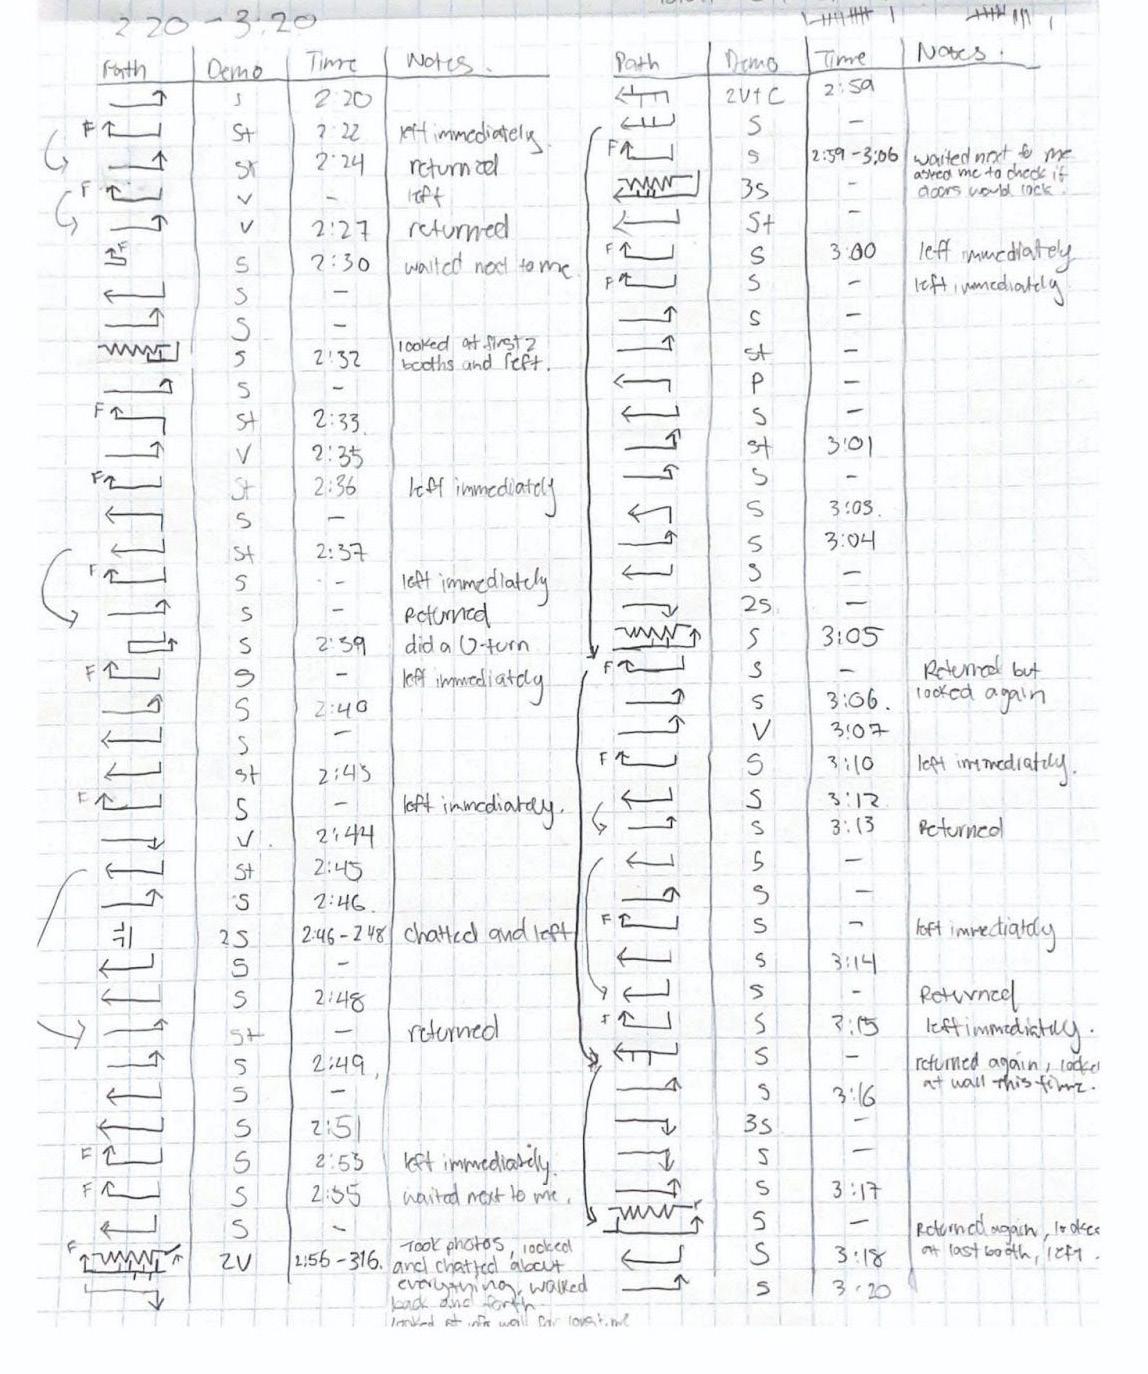 2 20 - 3:20
Path Demo Time Notes.
S 2:20
F St 2:22 left immediately.
St 2:24 returned
F V - left
V 2:27 returned
F S 2:30 waited next to me
S -
S -
S 2:32 looked at first 2
booths and left.
S -
F St 2:33.
V 2:35
F St 2:36 left immediately
S -
St 2:37
F S - left immediately
S - Returned
S 2:39 did a U-turn
F S - left immediately
S 2:40
S -
St 2:43
F S - left immediately.
V. 2:44
St 2:45
S 2:46.
2S 2:46-2:48 chatted and left
S -
S 2:48
St - returned
S 2:49,
S -
S 2:51
F S 2:53 left immediately.
F S 2:55 waited next to me.
S -
F 2V 2:56-316. Took photos, looked
and chatted about
everything, walked
back and forth
looked at info wall for
Path Demo Time Notes.
2V+C 2:59
S -
F S 2:59-3:06 waited next to me
asked me to check if
doors would lock.
3S -
St -
F S 3:00 left immediately
F S - left immediately
S -
St -
P -
S -
St 3:01
S -
S 3:03.
S 3:04
S -
2S. -
S 3:05
F S - Returned but
looked again
S 3:06.
V 3:07
F S 3:10 left immediately.
S 3:12
S 3:13 Returned
S -
S -
F S - left immediately
S 3:14
S - Returned
F S 3:15 left immediately.
S - returned again, looked
at wall this time.
S 3:16
3S -
S -
S 3:17
F S - Returned again, looked
at last booth, left.
S 3:18
S 3:20